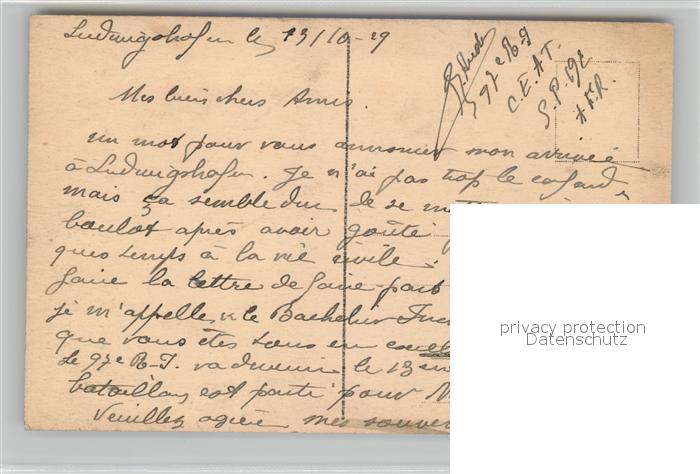 Ludwigshafen le 13/10-29
97e R-I
C.E.A.T.
S.P. 192
A.F.R.
Mes biens chers Amis.
un mot pour vous annoncer mon arrivée
à Ludwigshafen. Je n'ai pas trop le cafard
mais ça semble dur de se
boulot après avoir goûté
ques temps à la vie civile.
faire la lettre de faire part
je m'appelle
que vous êtes tous en
Le 97e R-I. va devenir le 13em
bataillon, est parti pour
Veuillez agréer mes
privacy protection
Datenschutz